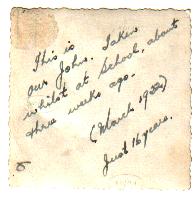 This is
our John. Taken
whilst at School, about
three weeks ago.
(March 1932)
Just 16 years.